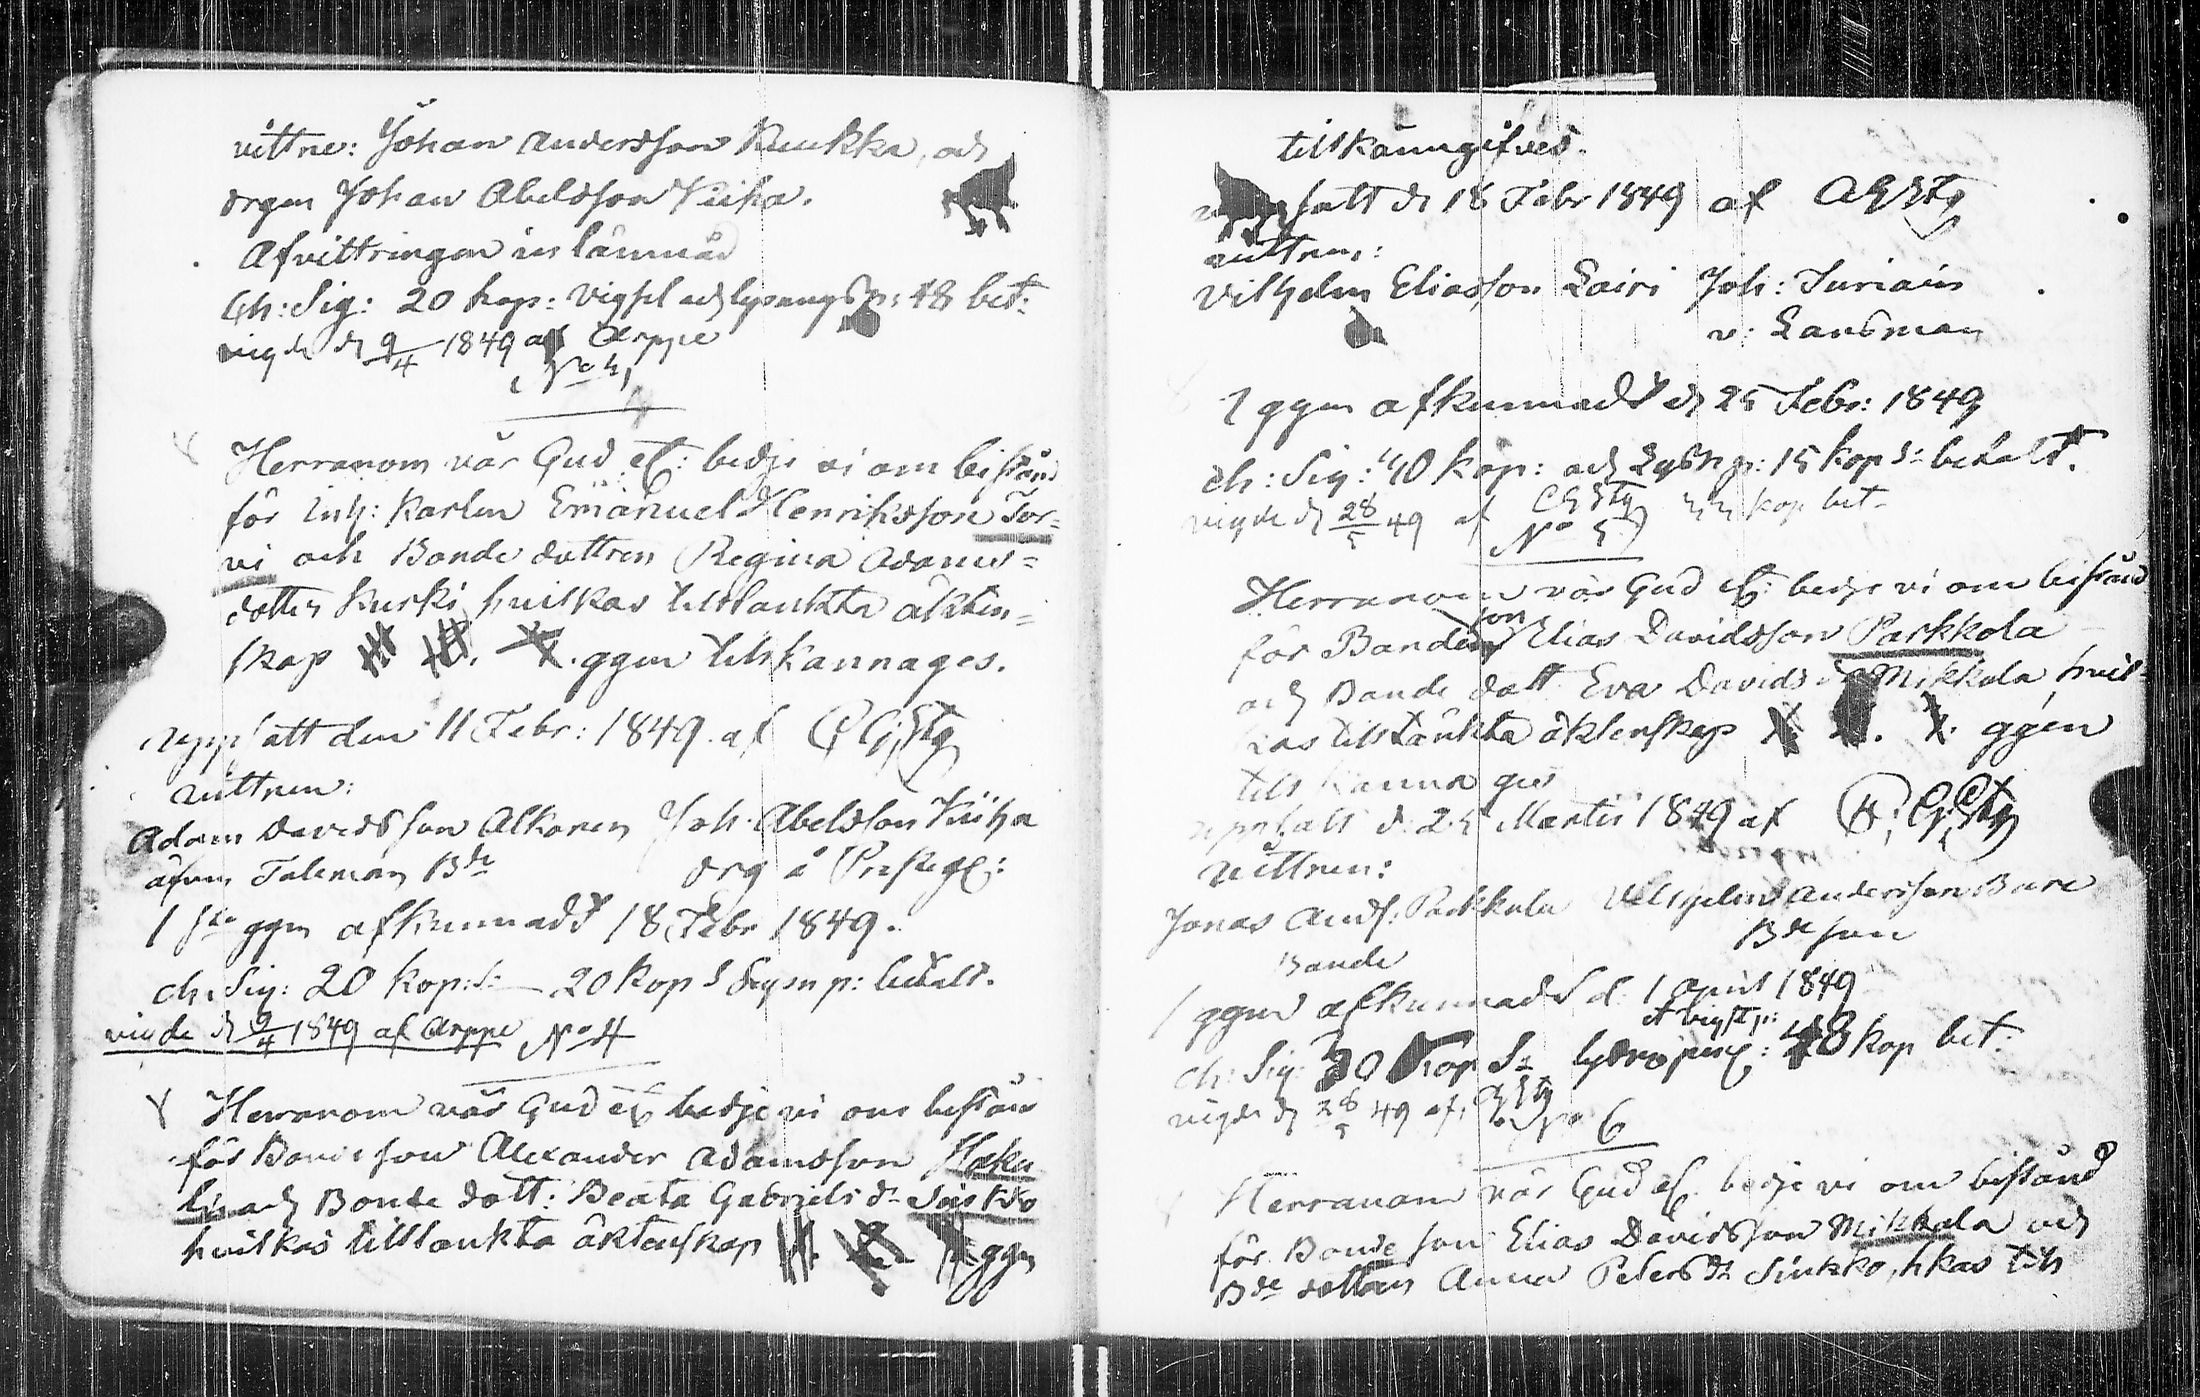 vittne: Johan Andersson Kukka, och
drgen Johan Abelsson Kiiha.
Afvittringen inlämnad
Ch: Sig: 20 kop: Vigsl och lysnngsp: 48 bet:
vigde d 9/4 1849 af Arppe
Herranom vår Gud etc: bedje vi om bistånd
för Inh: Karlen Emanuel Henriksson Tor=
vi och Bonde dottren Regina Adams=
dotter Kurki, hvilkas tilltänkta äkten=
skap ggen tillkännages.
uppsatt den 11 Febr: 1849 af
vittnen:
Adam Davidsson Alkonen Joh. Abelsson Kiiha
Bde drg å
1 sta ggn afkunnadt 18 Febr 1849.
ch. Sig: 20 kop: S: 20 kop S Lysn p: betalt.
vigde d 9/4 1849 af Arppe No 4
Herranom vår Gud etc bedje vi om bistånd
för Bonde son Alexander Adamsson Haku
lin och Bonde dott: Beata Gabriels dr Sinkko
hvilkas tilltänkta äktenskap ggn
tillkännagifves.
satt d 18 Febr 1849 af
vittnen:
Vilhelm Eliasson Lairi Joh: Turiain
v: Länsman
1 ggn afkunnadt d 25 Febr: 1849
ch: Sig: 40 kop: och Lysn p: 15 kop S: betalt.
vigde d 28/5 49 af kop bet.
No 5
Herranom vår Gud etc: bedje vi om bistånd
för Bondeson Elias Davidsson Parkkola
och Bonde dott Eva Davids dr Mikkola hvil=
kas tilltänkta äktenskap ggen
tillkännages
uppsatt d. 25 Martii 1849 af
vittnen:
Jonas Ands: Parkkola Vilhelm Andersson Bure
Bonde Bde son
1 ggn afkunnadt d. 1 April 1849
et vigslp:
ch: Sig: 30 kop S: 48 kop bet:
vigde d 28/5 49 af
No 6
Herranom vår Gud etc. bedje vi om bistånd
för Bonde son Elias Davidsson Mikkola och
Bde dottren Anna Peters dr Sinkko, hkas till